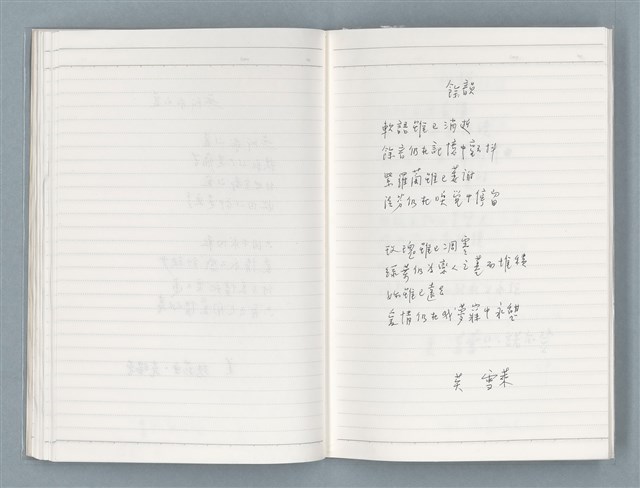 餘韻
軟語雖已消逝
餘音仍在記憶中顫抖
紫羅蘭雖已萎謝
芬芳仍在嗅覺中停留
玫瑰雖已凋零
綠葉仍為戀人之墓而堆積
你雖已遠去
愛情仍在我夢寐中永
英 雪萊